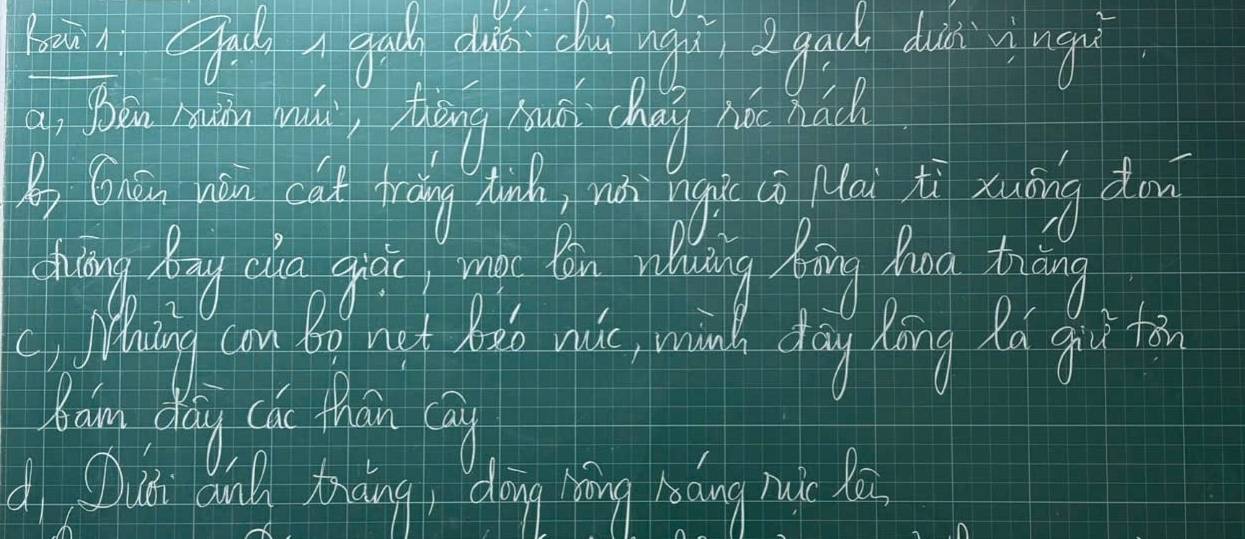 Bài 1: Gạch 1 gạch dưới chủ ngữ, 2 gạch dưới vị ngữ.
a, Bên sườn núi, tiếng suối chảy róc rách.
b, Trên nền cát trắng tinh, nơi ngực cô Mai tì xuống đón
đường bay của giặc, mọc lên những bông hoa trắng.
c, Những con bọ nẹt béo núc, mình đầy lông lá giữ tợn
bám đầy các thân cây
d, Dưới ánh trăng, dòng sông sáng rực lên